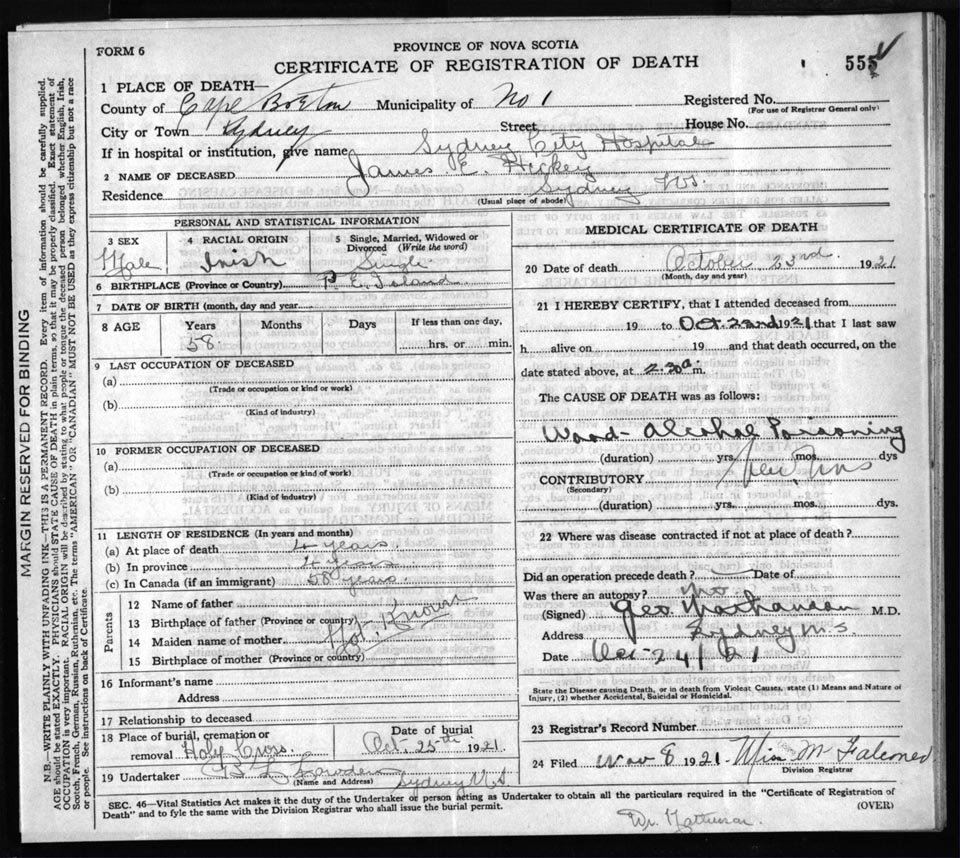 FORM 6
PROVINCE OF NOVA SCOTIA
CERTIFICATE OF REGISTRATION OF DEATH
555
1 PLACE OF DEATH—
County of Cape Breton Municipality of No 1 Registered No.
(For use of Registrar General only)
City or Town Sydney Street House No.
If in hospital or institution, give name Sydney City Hospital
2 NAME OF DECEASED James E. Hickey
Residence Sydney N.S.
(Usual place of abode)
PERSONAL AND STATISTICAL INFORMATION
3 SEX 4 RACIAL ORIGIN 5 Single, Married, Widowed or Divorced (Write the word)
Male Irish Single
6 BIRTHPLACE (Province or Country) P. E. Island
7 DATE OF BIRTH (month, day and year)
8 AGE Years Months Days If less than one day,
58 hrs. or min.
9 LAST OCCUPATION OF DECEASED
(a)
(Trade or occupation or kind or work)
(b)
(Kind of industry)
10 FORMER OCCUPATION OF DECEASED
(a)
(Trade or occupation or kind of work)
(b)
(Kind of industry)
11 LENGTH OF RESIDENCE (In years and months)
(a) At place of death 4 years.
(b) In province 4 years
(c) In Canada (if an immigrant) 58 years.
Parents
12 Name of father
13 Birthplace of father (Province or country)
Not Known
14 Maiden name of mother
15 Birthplace of mother (Province or country)
16 Informant's name
Address
17 Relationship to deceased
18 Place of burial, cremation or removal Holy Cross. Date of burial Oct. 25th 1921.
19 Undertaker Sydney N.S
(Name and Address)
MEDICAL CERTIFICATE OF DEATH
20 Date of death October 23rd. 1921
(Month, day and year)
21 I HEREBY CERTIFY, that I attended deceased from
19 to Oct. 22nd 1921 that I last saw
h alive on 19 and that death occurred, on the
date stated above, at 2.30 a m.
The CAUSE OF DEATH was as follows:
Wood-Alcohol Poisoning
(duration) yrs. mos. dys
few hrs
CONTRIBUTORY
(Secondary)
(duration) yrs. mos. dys.
22 Where was disease contracted if not at place of death?
Did an operation precede death? Date of
Was there an autopsy? No
(Signed) Geo M.D.
Address Sydney N.S.
Date Oct-24/21
State the Disease causing Death, or in death from Violent Causes, state (1) Means and Nature of
Injury, (2) whether Accidental, Suicidal or Homicidal.
23 Registrar's Record Number
24 Filed Nov 8 1921 Miss M Falconer
Division Registrar
SEC. 46—Vital Statistics Act makes it the duty of the Undertaker or person acting as Undertaker to obtain all the particulars required in the "Certificate of Registration of
Death" and to fyle the same with the Division Registrar who shall issue the burial permit.
(OVER)
MARGIN RESERVED FOR BINDING
N.B.—WRITE PLAINLY WITH UNFADING INK—THIS IS A PERMANENT RECORD. Every item of information should be carefully supplied.
AGE should be stated EXACTLY. PHYSICIANS should STATE CAUSE OF DEATH in plain terms, so that it may be properly classified. Exact statement of
OCCUPATION is very important. RACIAL ORIGIN will be described by stating to what people or tongue the deceased person belonged whether English, Irish,
Scotch, French, German, Russian, Ruthenian, etc. The terms "AMERICAN" OR "CANADIAN" MUST NOT BE USED as they express citizenship but not a race
or people. See instructions on back of Certificate.